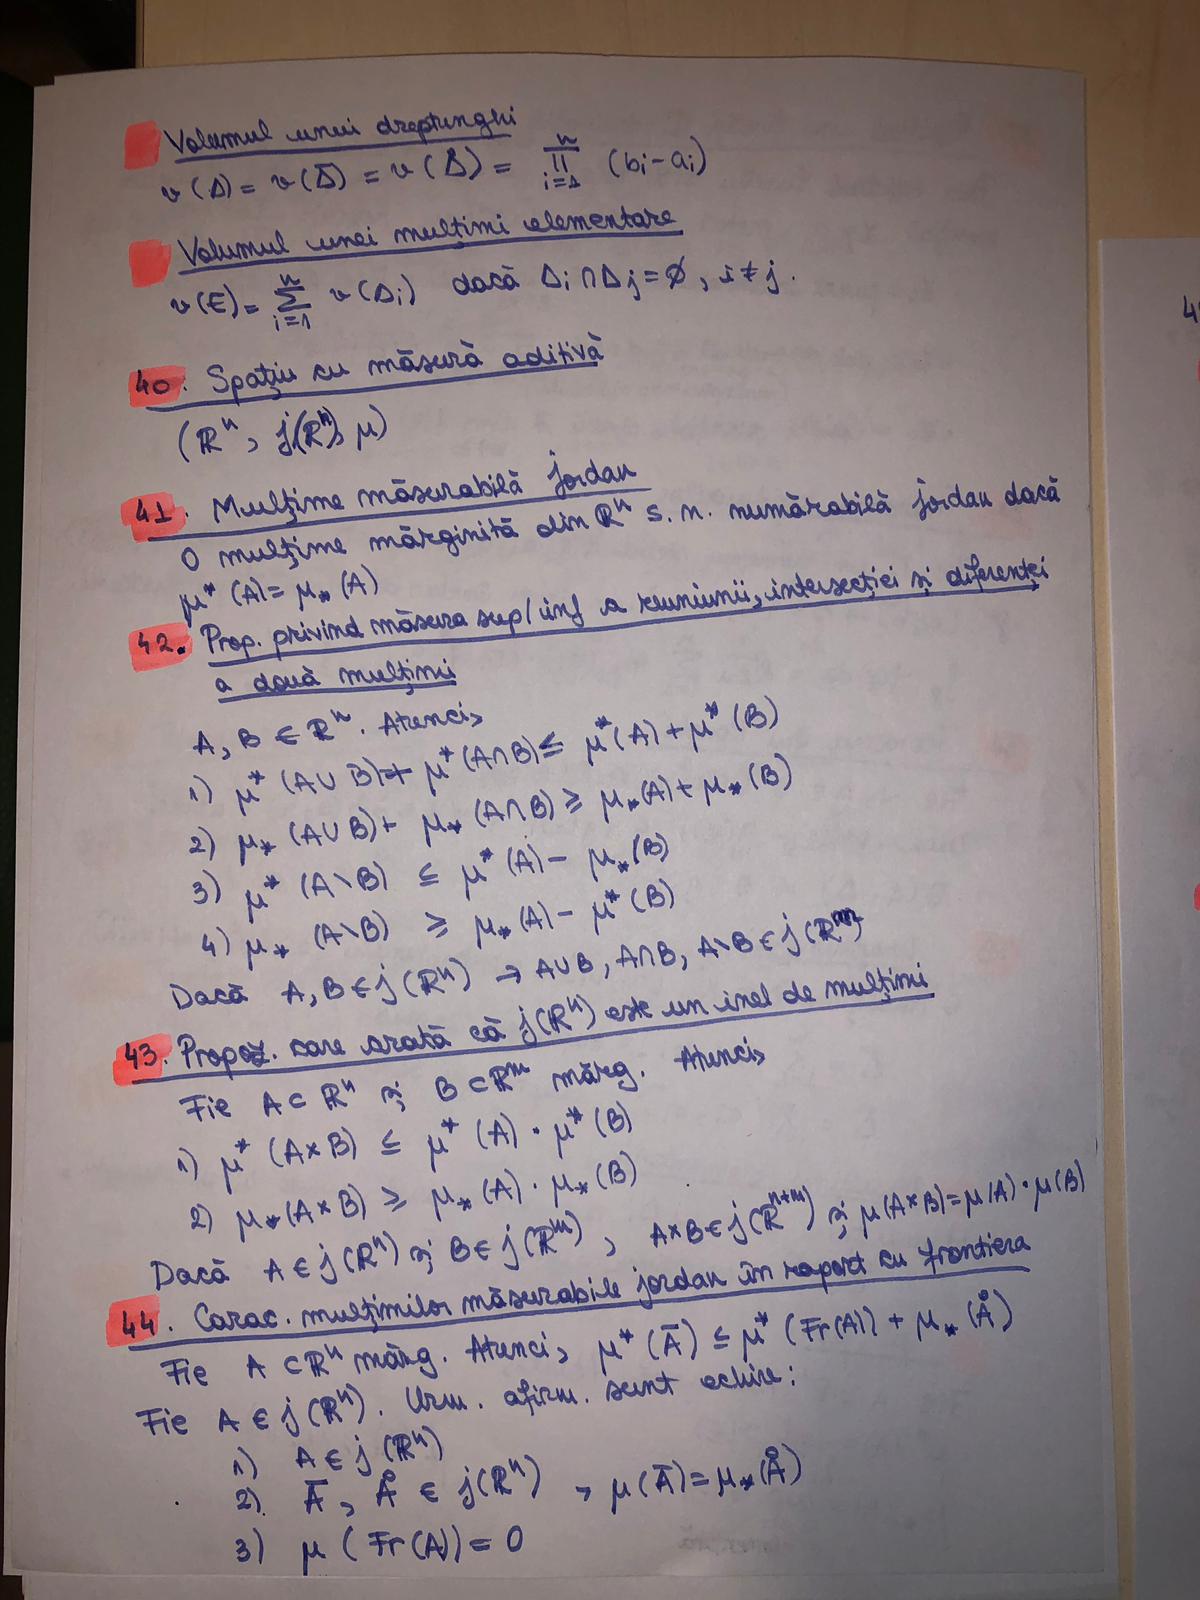 Volumul unui dreptunghi
v(Δ) = v(Δ̄) = v(Δ̊) = ∏_{i=1}^{n} (bi - ai)
Volumul unei mulțimi elementare
v(E) = ∑_{i=1}^{n} v(Δi) dacă Δi ∩ Δj = ∅, i ≠ j.
40. Spațiu cu măsură aditivă
(ℝⁿ, j(ℝⁿ), μ)
41. Mulțime măsurabilă jordan
O mulțime mărginită din ℝⁿ s.n. numărabilă jordan dacă
μ*(A) = μ_*(A)
42. Prop. privind măsura sup/inf a reuniunii, intersecției și diferenței
a două mulțimi
A, B ∈ ℝⁿ. Atunci,
1) μ*(A∪B) + μ*(A∩B) ≤ μ*(A) + μ*(B)
2) μ_*(A∪B) + μ_*(A∩B) ≥ μ_*(A) + μ_*(B)
3) μ*(A\B) ≤ μ*(A) - μ_*(B)
4) μ_*(A\B) ≥ μ_*(A) - μ*(B)
Dacă A, B ∈ j(ℝⁿ) → A∪B, A∩B, A\B ∈ j(ℝ
43. Propoz. care arată că j(ℝⁿ) este un inel de mulțimi
Fie A ⊂ ℝⁿ și B ⊂ ℝᵐ mărg. Atunci,
1) μ*(A×B) ≤ μ*(A) · μ*(B)
2) μ_*(A×B) ≥ μ_*(A) · μ_*(B)
Dacă A ∈ j(ℝⁿ) și B ∈ j(ℝᵐ), A×B ∈ j(ℝⁿ⁺ᵐ) și μ(A×B) = μ(A) · μ(B)
44. Carac. mulțimilor măsurabile jordan în raport cu frontiera
Fie A ⊂ ℝⁿ mărg. Atunci, μ*(Ā) ≤ μ*(Fr(A)) + μ_*(Å)
Fie A ∈ j(ℝⁿ). Urm. afirm. sunt echive:
1) A ∈ j(ℝⁿ)
2) Ā, Å ∈ j(ℝⁿ), μ(Ā) = μ_*(Å)
3) μ(Fr(A)) = 0